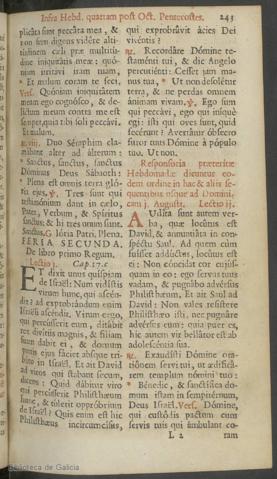 Infra Hebd. quartam post Oct. Pentecostes. 243
plicáta sunt peccáta mea, &
non sum dignus vidére alti-
túdinem cæli præ multitú-
dine iniquitátis meæ: quó-
niam irritávi iram tuam,
* Et malum coram te feci.
Vers. Quóniam iniquitátem
meam ego cognósco, & de-
líctum meum contra me est
semper, quia tibi soli peccávi.
Et malum.
viii. Duo Séraphim cla-
mábant alter ad álterum:
* Sanctus, sanctus, sanctus
Dóminus Deus Sábaoth:
* Plena est omnis terra gló-
ria ejus. ℣. Tres sunt qui
testimónium dant in cælo,
Pater, Verbum, & Spíritus
sanctus: & hi tres unum sunt.
Sanctus. Glória Patri. Plena.
FERIA SECUNDA.
De libro primo Regum.
Lectio j. Cap. 17. c
ET dixit unus quíspiam
de Israël: Num vidístis
virum hunc, qui ascén-
dit? ad exprobrándum enim
Israëli ascéndit. Virum ergo,
qui percússerit eum, ditábit
rex divítiis magnis, & fíliam
suam dabit ei, & domum
patris ejus fáciet absque tri-
búto in Israël. Et ait David
ad viros qui stabant secum,
dicens: Quid dábitur viro
qui percússerit Philisthæum
hunc, & túlerit oppróbrium
de Israël? Quis enim est hic
Philisthæus incircumcísus,
qui exprobrávit ácies Dei
vivéntis?
℟. Recordáre Dómine te-
staménti tui, & dic Angelo
percutiénti: Cesset jam ma-
nus tua, * Ut non desolétur
terra, & ne perdas omnem
ánimam vivam. ℣. Ego sum
qui peccávi, ego qui iníquè
egi: isti qui oves sunt, quid
fecérunt? Avertátur óbsecro
furor tuus Dómine à pópulo
tuo. Ut non.
Responsoria præteritæ
Hebdomadæ dicuntur eo-
dem ordine in hac & aliis se-
quentibus usque ad Domini-
cam j. Augusti. Lectio ij.
AUdíta sunt autem ver-
ba, quæ locútus est
David, & annuntiáta in con-
spéctu Saul. Ad quem cùm
fuísset addúctus, locútus est
ei: Non cóncidat cor cujús-
quam in eo: ego servus tuus
vadam, & pugnábo advérsus
Philisthæum. Et ait Saul ad
David: Non vales resístere
Philisthæo isti, nec pugnáre
advérsus eum: quia puer es,
hic autem vir bellátor est ab
adolescéntia sua.
℟. Exaudísti Dómine ora-
tiónem servi tui, ut ædificá-
rem templum nómini tuo:
* Bénedic, & sanctífica do-
mum istam in sempitérnum,
Deus Israël. Vers. Dómine,
qui custódis pactum cum
servis tuis qui ámbulant co-
L 2 ram
Biblioteca de Galicia